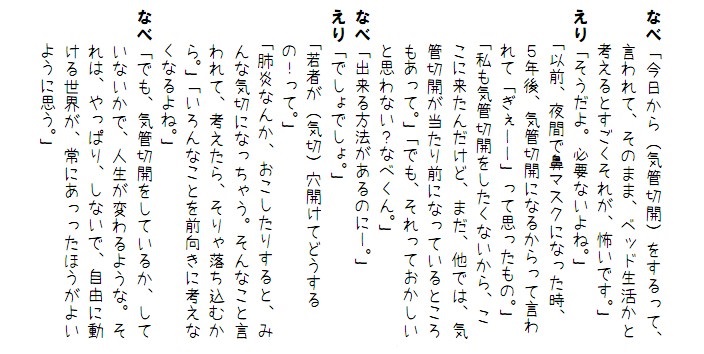 なべ「今日から（気管切開）をするって、
言われて、そのまま、ベッド生活かと
考えるとすごくそれが、怖いです。」
えり「そうだよ。必要ないよね。」
「以前、夜間で鼻マスクになった時、
５年後、気管切開になるからって言わ
れて「ぎぇーー」って思ったもの。」
「私も気管切開をしたくないから、こ
こに来たんだけど、まだ、他では、気
管切開が当たり前になっているところ
もあって。」「でも、それっておかしい
と思わない？なべくん。」
なべ「出来る方法があるのにー。」
えり「でしょでしょ。」
「若者が（気切）穴開けてどうする
の！って。」
「肺炎なんか、おこしたりすると、み
んな気切になっちゃう。そんなこと言
われて、考えたら、そりゃ落ち込むか
ら。」「いろんなことを前向きに考えな
くなるよね。」
なべ「でも、気管切開をしているか、して
いないかで、人生が変わるような。そ
れは、やっぱり、しないで、自由に動
ける世界が、常にあったほうがよい
ように思う。」